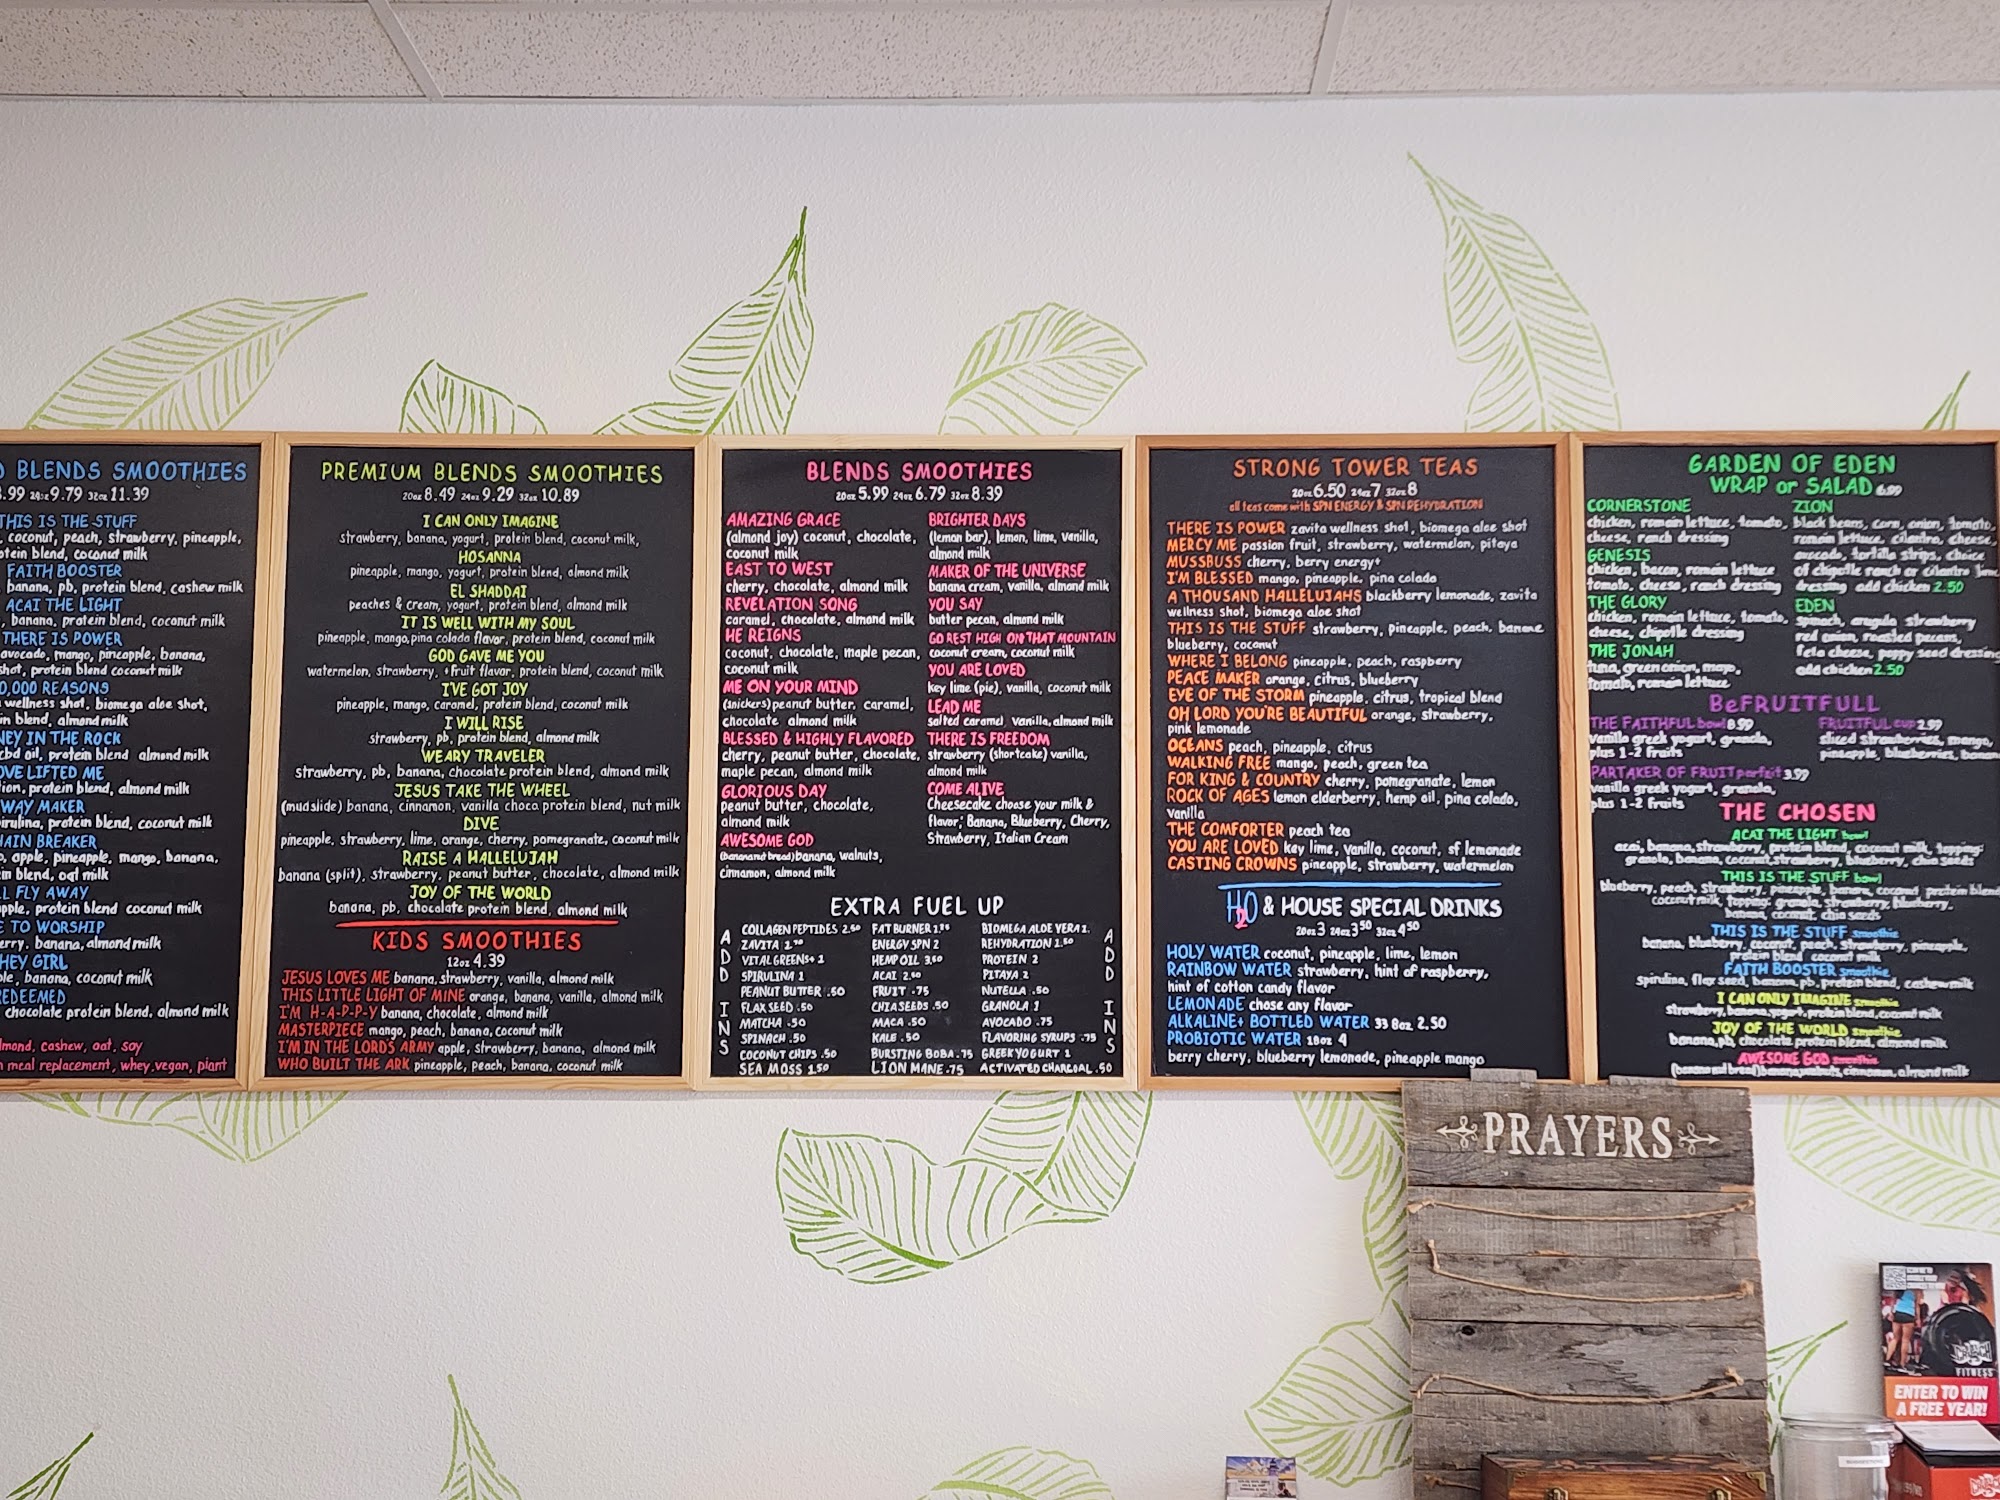 BLENDS SMOOTHIES
.99 24oz 9.79 32oz 11.39
THIS IS THE STUFF
coconut, peach, strawberry, pineapple,
protein blend, coconut milk
FAITH BOOSTER
banana, pb, protein blend, cashew milk
ACAI THE LIGHT
banana, protein blend, coconut milk
THERE IS POWER
avocado, mango, pineapple, banana,
shot, protein blend coconut milk
0,000 REASONS
wellness shot, biomega aloe shot,
blend, almond milk
IN THE ROCK
cbd oil, protein blend almond milk
LIFTED ME
protein blend, almond milk
WAY MAKER
protein blend, coconut milk
BREAKER
apple, pineapple, mango, banana,
blend, oat milk
FLY AWAY
protein blend coconut milk
TO WORSHIP
banana, almond milk
HEY GIRL
banana, coconut milk
REDEEMED
chocolate protein blend, almond milk
almond, cashew, oat, soy
meal replacement, whey, vegan, plant
PREMIUM BLENDS SMOOTHIES
20oz 8.49 24oz 9.29 32oz 10.89
I CAN ONLY IMAGINE
strawberry, banana, yogurt, protein blend, coconut milk,
HOSANNA
pineapple, mango, yogurt, protein blend, almond milk
EL SHADDAI
peaches & cream, yogurt, protein blend, almond milk
IT IS WELL WITH MY SOUL
pineapple, mango, pina colada flavor, protein blend, coconut milk
GOD GAVE ME YOU
watermelon, strawberry, +fruit flavor, protein blend, coconut milk
I'VE GOT JOY
pineapple, mango, caramel, protein blend, coconut milk
I WILL RISE
strawberry, pb, protein blend, almond milk
WEARY TRAVELER
strawberry, pb, banana, chocolate protein blend, almond milk
JESUS TAKE THE WHEEL
(mudslide) banana, cinnamon, vanilla choco protein blend, nut milk
DIVE
pineapple, strawberry, lime, orange, cherry, pomegranate, coconut milk
RAISE A HALLELUJAH
banana (split), strawberry, peanut butter, chocolate, almond milk
JOY OF THE WORLD
banana, pb, chocolate protein blend, almond milk
KIDS SMOOTHIES
12oz 4.39
JESUS LOVES ME banana, strawberry, vanilla, almond milk
THIS LITTLE LIGHT OF MINE orange, banana, vanilla, almond milk
I'M H-A-P-P-Y banana, chocolate, almond milk
MASTERPIECE mango, peach, banana, coconut milk
I'M IN THE LORD'S ARMY apple, strawberry, banana, almond milk
WHO BUILT THE ARK pineapple, peach, banana, coconut milk
BLENDS SMOOTHIES
20oz 5.99 24oz 6.79 32oz 8.39
AMAZING GRACE
(almond joy) coconut, chocolate,
coconut milk
EAST TO WEST
cherry, chocolate, almond milk
REVELATION SONG
caramel, chocolate, almond milk
HE REIGNS
coconut, chocolate, maple pecan,
coconut milk
ME ON YOUR MIND
(snickers) peanut butter, caramel,
chocolate almond milk
BLESSED & HIGHLY FLAVORED
cherry, peanut butter, chocolate,
maple pecan, almond milk
GLORIOUS DAY
peanut butter, chocolate,
almond milk
AWESOME GOD
(banana nut bread) banana, walnuts,
cinnamon, almond milk
BRIGHTER DAYS
(lemon bar), lemon, lime, vanilla,
almond milk
MAKER OF THE UNIVERSE
banana cream, vanilla, almond milk
YOU SAY
butter pecan, almond milk
GO REST HIGH ON THAT MOUNTAIN
coconut cream, coconut milk
YOU ARE LOVED
key lime (pie), vanilla, coconut milk
LEAD ME
salted caramel, vanilla, almond milk
THERE IS FREEDOM
strawberry (shortcake) vanilla,
almond milk
COME ALIVE
Cheesecake choose your milk &
flavor; Banana, Blueberry, Cherry,
Strawberry, Italian Cream
EXTRA FUEL UP
ADD INS
COLLAGEN PEPTIDES 2.50 FAT BURNER BIOMEGA ALOE VERA 2.
ZAVITA ENERGY SPN 2 REHYDRATION 1.50
VITAL GREENS+ 1 HEMP OIL 3.50 PROTEIN 2
SPIRULINA 1 ACAI 2.50 PITAYA 2
PEANUT BUTTER .50 FRUIT .75 NUTELLA .50
FLAX SEED .50 CHIA SEEDS .50 GRANOLA 1
MATCHA .50 MACA .50 AVOCADO .75
SPINACH .50 KALE .50 FLAVORING SYRUPS .75
COCONUT CHIPS .50 BURSTING BOBA .75 GREEK YOGURT 1
SEA MOSS 1.50 LION MANE .75 ACTIVATED CHARCOAL .50
ADD INS
STRONG TOWER TEAS
20oz 6.50 24oz 7 32oz 8
all teas come with SPN ENERGY & SPN REHYDRATION
THERE IS POWER zavita wellness shot, biomega aloe shot
MERCY ME passion fruit, strawberry, watermelon, pitaya
MUSSBUSS cherry, berry energy+
I'M BLESSED mango, pineapple, pina colada
A THOUSAND HALLELUJAHS blackberry lemonade, zavita
wellness shot, biomega aloe shot
THIS IS THE STUFF strawberry, pineapple, peach, banana
blueberry, coconut
WHERE I BELONG pineapple, peach, raspberry
PEACE MAKER orange, citrus, blueberry
EYE OF THE STORM pineapple, citrus, tropical blend
OH LORD YOU'RE BEAUTIFUL orange, strawberry,
pink lemonade
OCEANS peach, pineapple, citrus
WALKING FREE mango, peach, green tea
FOR KING & COUNTRY cherry, pomegranate, lemon
ROCK OF AGES lemon elderberry, hemp oil, pina colado,
vanilla
THE COMFORTER peach tea
YOU ARE LOVED key lime, vanilla, coconut, sf lemonade
CASTING CROWNS pineapple, strawberry, watermelon
H2O & HOUSE SPECIAL DRINKS
20oz 3 24oz 3.50 32oz 4.50
HOLY WATER coconut, pineapple, lime, lemon
RAINBOW WATER strawberry, hint of raspberry,
hint of cotton candy flavor
LEMONADE chose any flavor
ALKALINE+ BOTTLED WATER 33 8oz 2.50
PROBIOTIC WATER 18oz 4
berry cherry, blueberry lemonade, pineapple mango
GARDEN OF EDEN
WRAP or SALAD 6.99
CORNERSTONE
chicken, romain lettuce, tomato,
cheese, ranch dressing
GENESIS
chicken, bacon, romain lettuce
tomato, cheese, ranch dressing
THE GLORY
chicken, romain lettuce, tomato,
cheese, chipotle dressing
THE JONAH
tuna, green onion, mayo,
tomato, romain lettuce
ZION
black beans, corn, onion, tomato,
romain lettuce, cilantro, cheese,
avocado, tortilla strips, choice
of chipotle ranch or cilantro lime
dressing add chicken 2.50
EDEN
spinach, arugula strawberry
red onion, roasted pecans,
feta cheese, poppy seed dressing
add chicken 2.50
BeFRUITFULL
THE FAITHFUL bowl 8.99
vanilla greek yogurt, granola,
plus 1-2 fruits
FRUITFUL cup 2.99
sliced strawberries, mango,
pineapple, blueberries, banana
PARTAKER OF FRUIT parfait 3.99
vanilla greek yogurt, granola,
plus 1-2 fruits
THE CHOSEN
ACAI THE LIGHT bowl
acai, banana, strawberry, protein blend, coconut milk, topping:
granola, banana, coconut, strawberry, blueberry, chia seeds
THIS IS THE STUFF bowl
blueberry, peach, strawberry, pineapple, banana, coconut protein blend
coconut milk, topping: granola, strawberry, blueberry,
banana, coconut, chia seeds
THIS IS THE STUFF smoothie
banana, blueberry, coconut, peach, strawberry, pineapple,
protein blend coconut milk
FAITH BOOSTER smoothie
spirulina, flax seed, banana, pb, protein blend, cashew milk
I CAN ONLY IMAGINE smoothie
strawberry, banana, yogurt, protein blend, coconut milk
JOY OF THE WORLD smoothie
banana, pb, chocolate protein blend, almond milk
AWESOME GOD smoothie
(banana nut bread) banana, walnuts, cinnamon, almond milk
PRAYERS
FITNESS
ENTER TO WIN
A FREE YEAR!